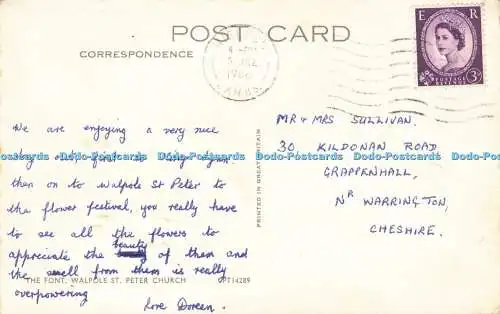 POST CARD
CORRESPONDENCE
E R
POSTAGE REVENUE
3D
1966
CAMBS
We are enjoying a very nice
day out, first to King's Lynn
then on to Walpole St Peter to
the flower festival, you really have
to see all the flowers to
appreciate the beauty of them and
the smell from them is really
overpowering
Love Doreen.
THE FONT, WALPOLE ST. PETER CHURCH
PT14289
PRINTED IN GREAT BRITAIN
MR & MRS SULLIVAN.
30 KILDONAN ROAD
GRAPPENHALL,
NR WARRINGTON,
CHESHIRE.
Dodo-Postcards Dodo-Postcards Dodo-Postcards Dodo-Postcards Dodo-Postcards Dodo-Postcards